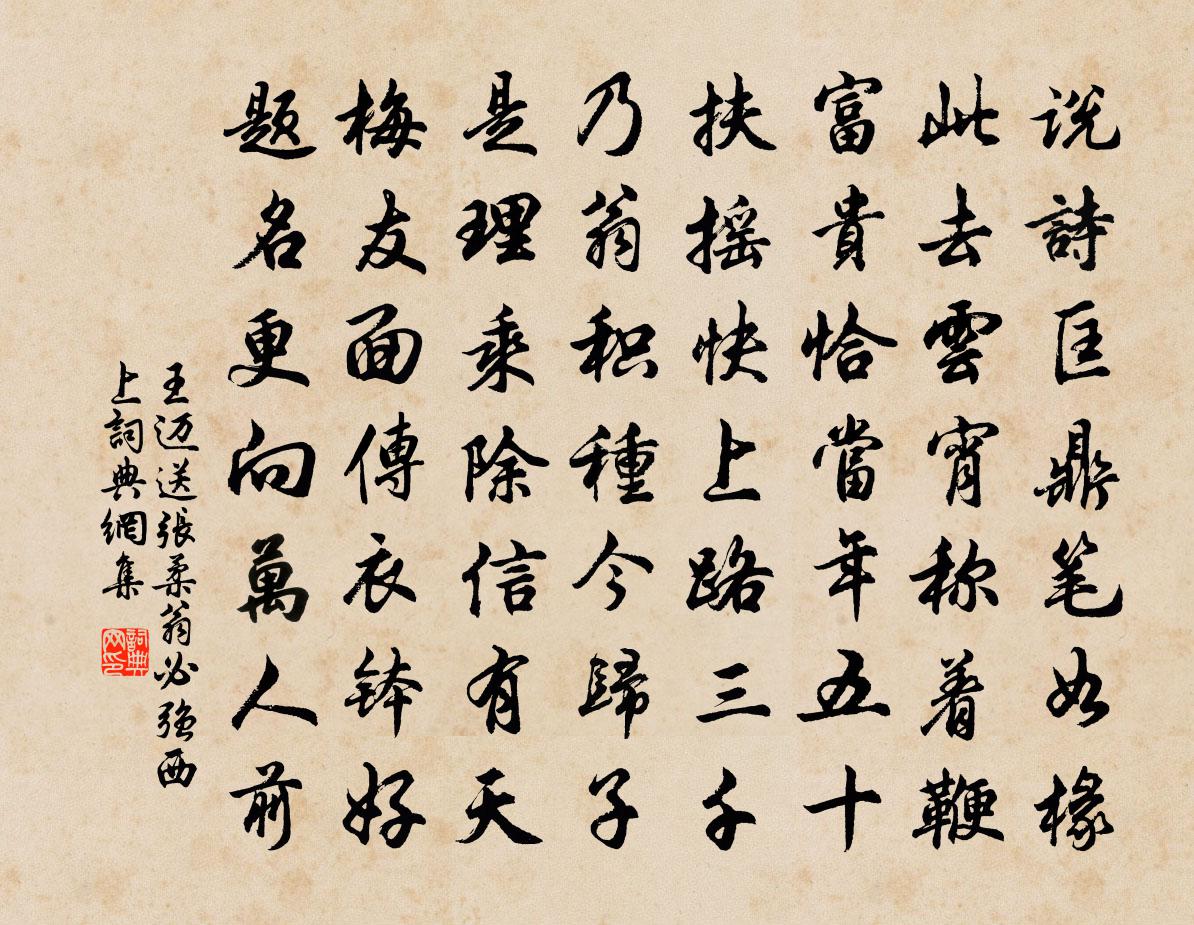 説詩匡鼎笔如椽
此去雲霄称着鞭
富貴恰當年五十
扶摇快上路三千
乃翁积種今歸子
是理乘除信有天
梅友面傳衣钵好
题名更向萬人前
王迈送張柔翁必强西
上詞典網集
詞典网印